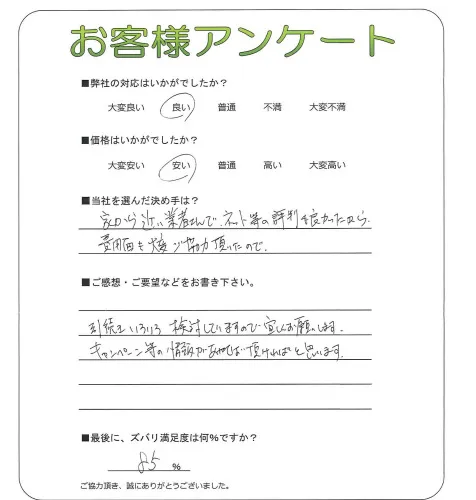 お客様アンケート
■弊社の対応はいかがでしたか?
大変良い 良い 普通 不満 大変不満
■価格はいかがでしたか?
大変安い 安い 普通 高い 大変高い
■当社を選んだ決め手は?
家から近い業者さんで、ネット等の評判も良かったから。
費用面も大変ご協力頂いたので。
■ご感想・ご要望などをお書き下さい。
引続きいろいろ検討していますので宜しくお願いします。
キャンペーン等の情報があれば頂ければと思います。
■最後に、ズバリ満足度は何%ですか?
85 %
ご協力頂き、誠にありがとうございました。